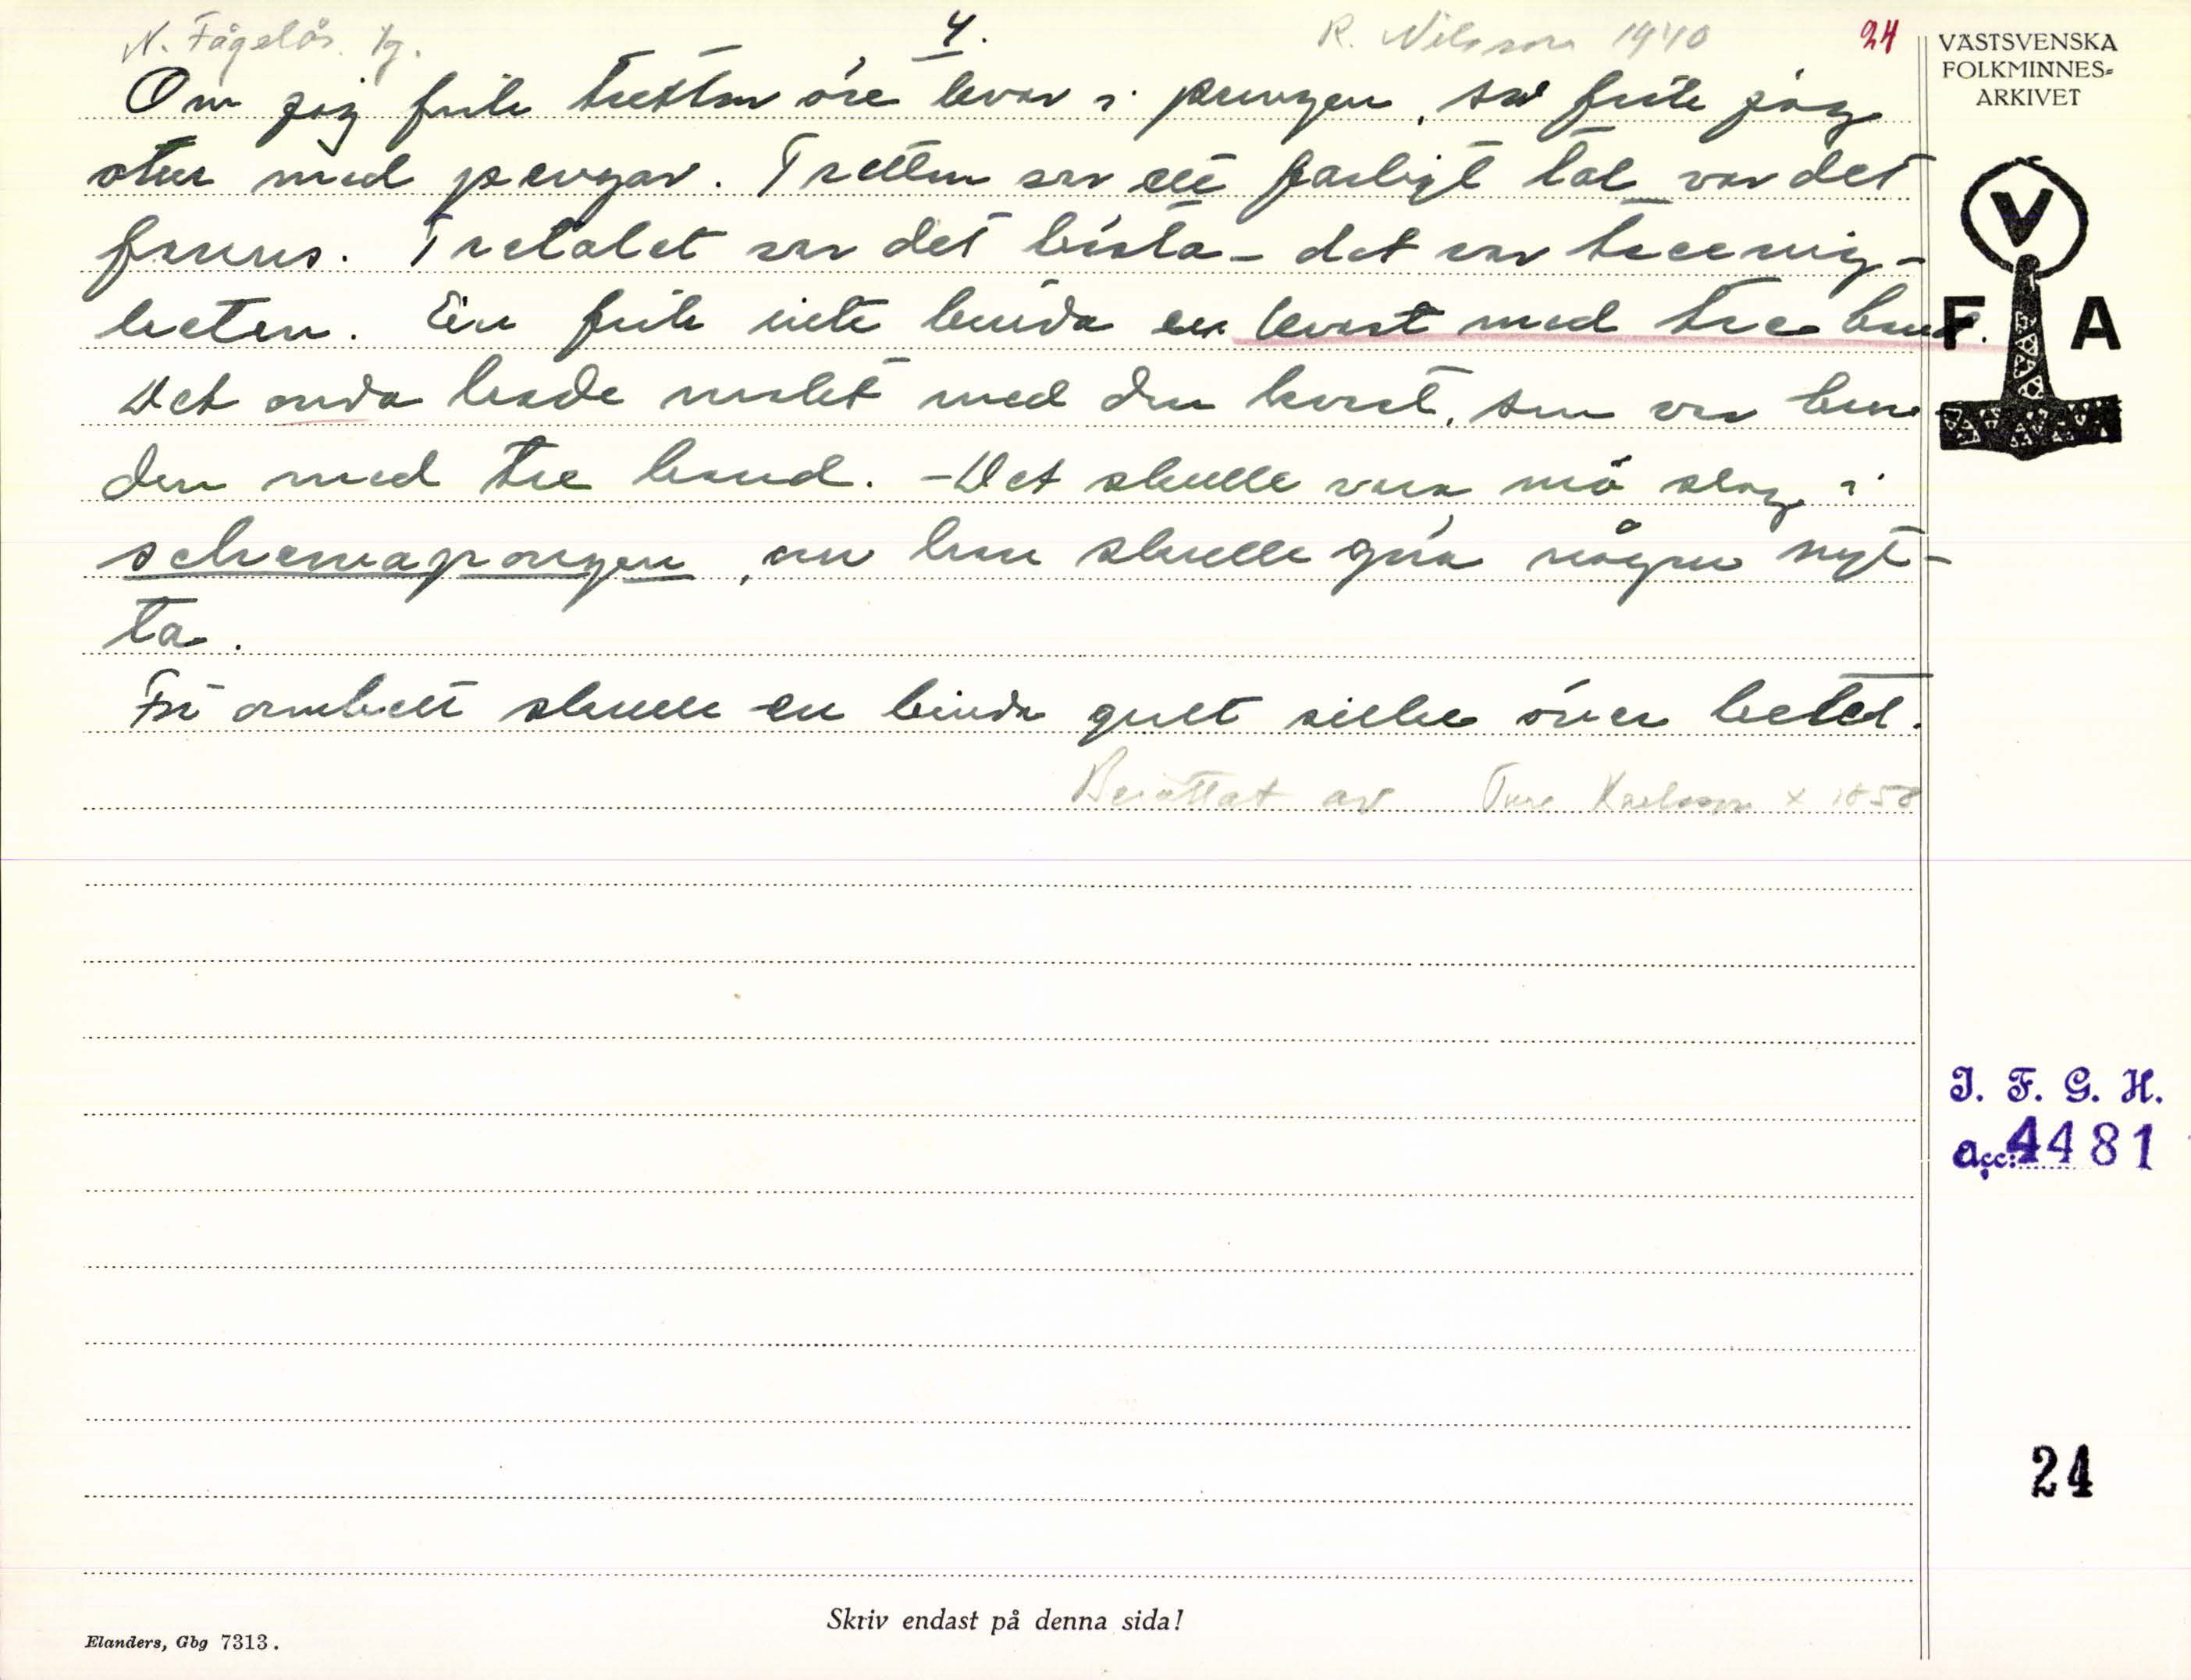 N. Fågelås. Vg.
4.
R. Nilsson 1940
24
VÄSTSVENSKA
FOLKMINNES-
ARKIVET
Om jag fick tretton öre kvar i pungen, så fick jag
otur med pengar. Tretton var ett farligt tal var det
fanns. Tretalet var det bästa - det var treenig-
heten. En fick inte binda en kvast med tre band.
Det onda hade maket med den kvast, som var bun-
den med tre band. - Det skulle vara nio slag i
schemapongen, om han skulle göra någon nyt-
ta.
För ombett skulle en binda gult silke över betet.
Berättat av Ture Karlsson x 1858
V
F A
I. F. G. H.
acc: 4481
24
Skriv endast på denna sida!
Elanders, Gbg 7313.